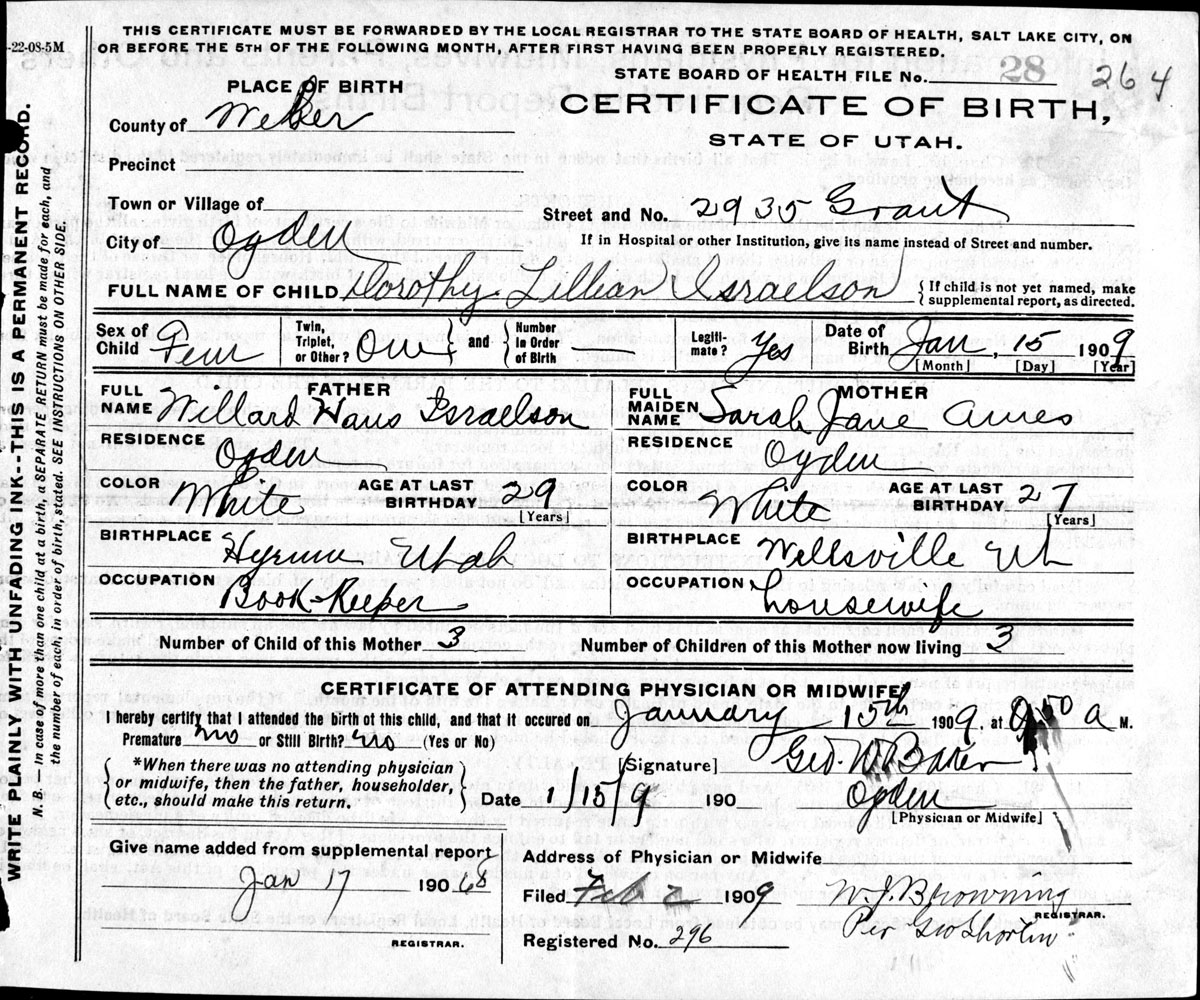 -22-08-5M
THIS CERTIFICATE MUST BE FORWARDED BY THE LOCAL REGISTRAR TO THE STATE BOARD OF HEALTH, SALT LAKE CITY, ON
OR BEFORE THE 5TH OF THE FOLLOWING MONTH, AFTER FIRST HAVING BEEN PROPERLY REGISTERED.
STATE BOARD OF HEALTH FILE No. 28 264
PLACE OF BIRTH
CERTIFICATE OF BIRTH,
STATE OF UTAH.
County of Weber
Precinct
Town or Village of
Street and No. 2935 Grant
City of Ogden
If in Hospital or other Institution, give its name instead of Street and number.
FULL NAME OF CHILD Dorothy Lillian Israelson { If child is not yet named, make
supplemental report, as directed.
Sex of Child Fem Twin, Triplet, or Other? One and Number in Order of Birth Legiti- mate? Yes Date of Birth Jan, 15 1909
[Month] [Day] [Year]
FATHER MOTHER
FULL NAME Willard Hans Israelson FULL MAIDEN NAME Sarah Jane Ames
RESIDENCE Ogden RESIDENCE Ogden
COLOR White AGE AT LAST BIRTHDAY 29 [Years] COLOR White AGE AT LAST BIRTHDAY 27 [Years]
BIRTHPLACE Hyrum Utah BIRTHPLACE Wellsville Ut
OCCUPATION Book-Keeper OCCUPATION housewife
Number of Child of this Mother 3 Number of Children of this Mother now living 3
CERTIFICATE OF ATTENDING PHYSICIAN OR MIDWIFE
I hereby certify that I attended the birth of this child, and that it occured on January 15th 1909, at a M.
Premature no or Still Birth? no (Yes or No)
[Signature] Geo. W Baker
*When there was no attending physician
or midwife, then the father, householder,
etc., should make this return.
Date 1/15/9 190 Ogden
[Physician or Midwife]
Give name added from supplemental report
Jan 17 190
REGISTRAR.
Address of Physician or Midwife
Filed Feb 2 1909 W. J. Browning
REGISTRAR.
Per Geo
Registered No. 296
WRITE PLAINLY WITH UNFADING INK--THIS IS A PERMANENT RECORD.
N. B. In case of more than one child at a birth, a SEPARATE RETURN must be made for each, and
the number of each in order of birth, stated. SEE INSTRUCTIONS ON OTHER SIDE.